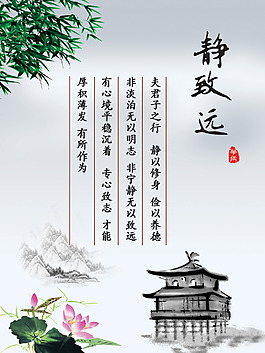 静致远
夫君子之行 静以修身 俭以养德
非淡泊无以明志 非宁静无以致远
有心境平稳沉着 专心致志 才能
厚积薄发 有所作为